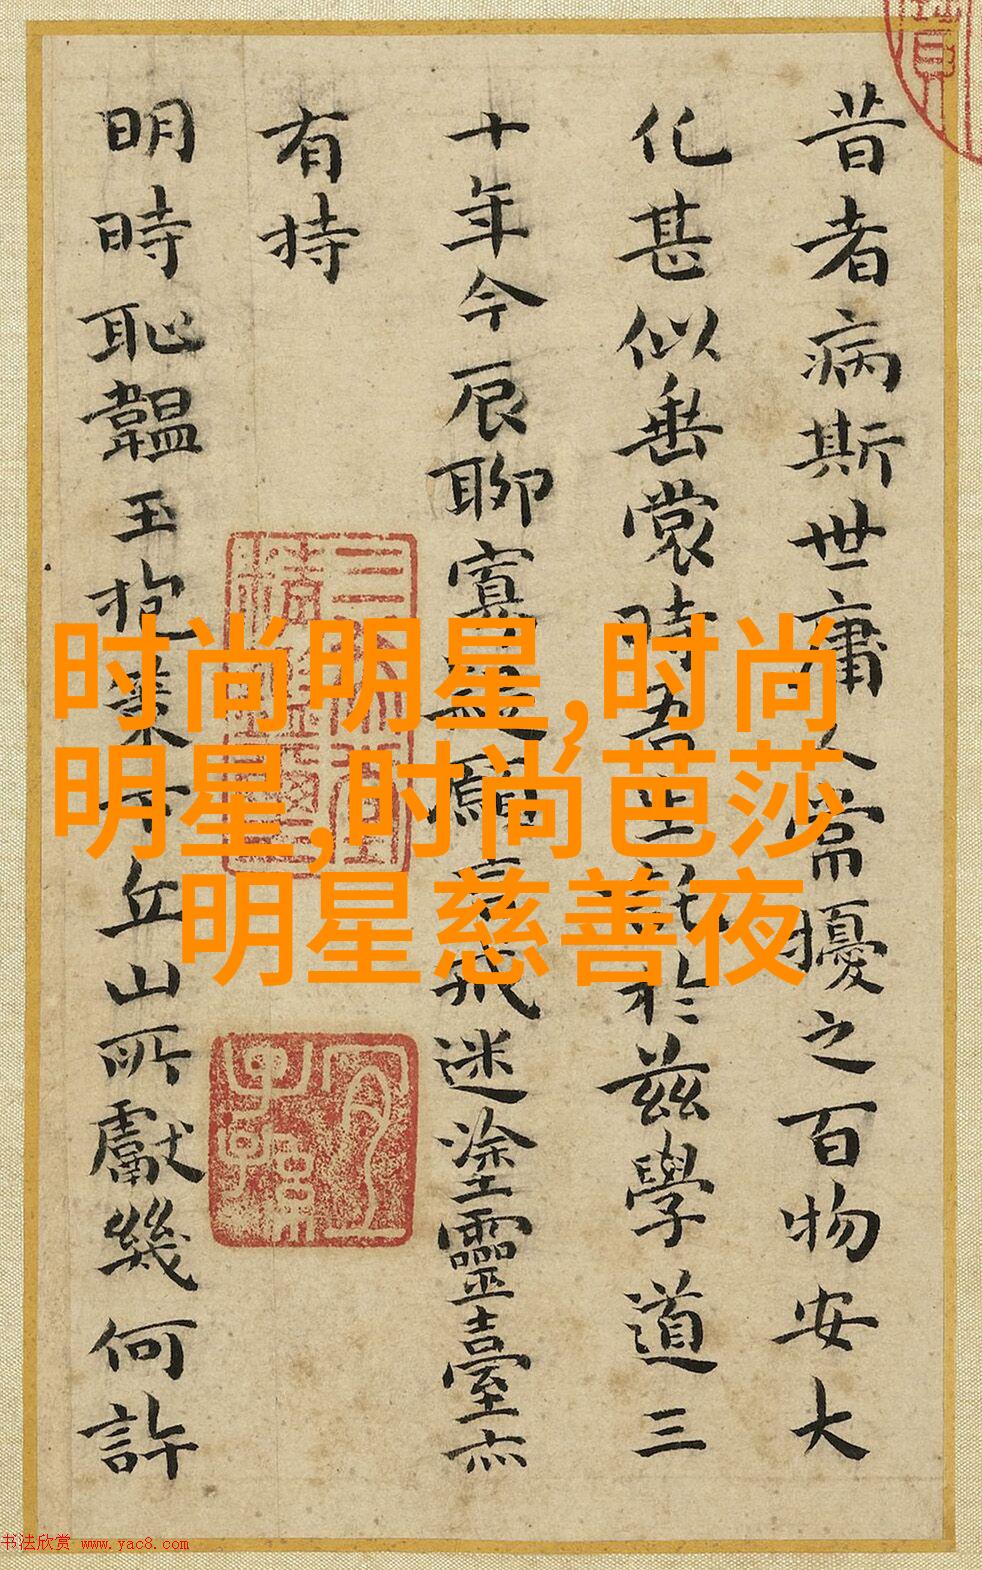 昔者病斯世庸人常擾之百物安大
化甚似垂裳時吾生託於茲學道三
十年今辰聊寡願戒迷塗靈臺亦
有持
明時恥韞玉抱丘山所獻幾何許
时尚明星,时尚
明星,时尚芭莎
明星慈善夜
书法欣赏 www.yac8.com